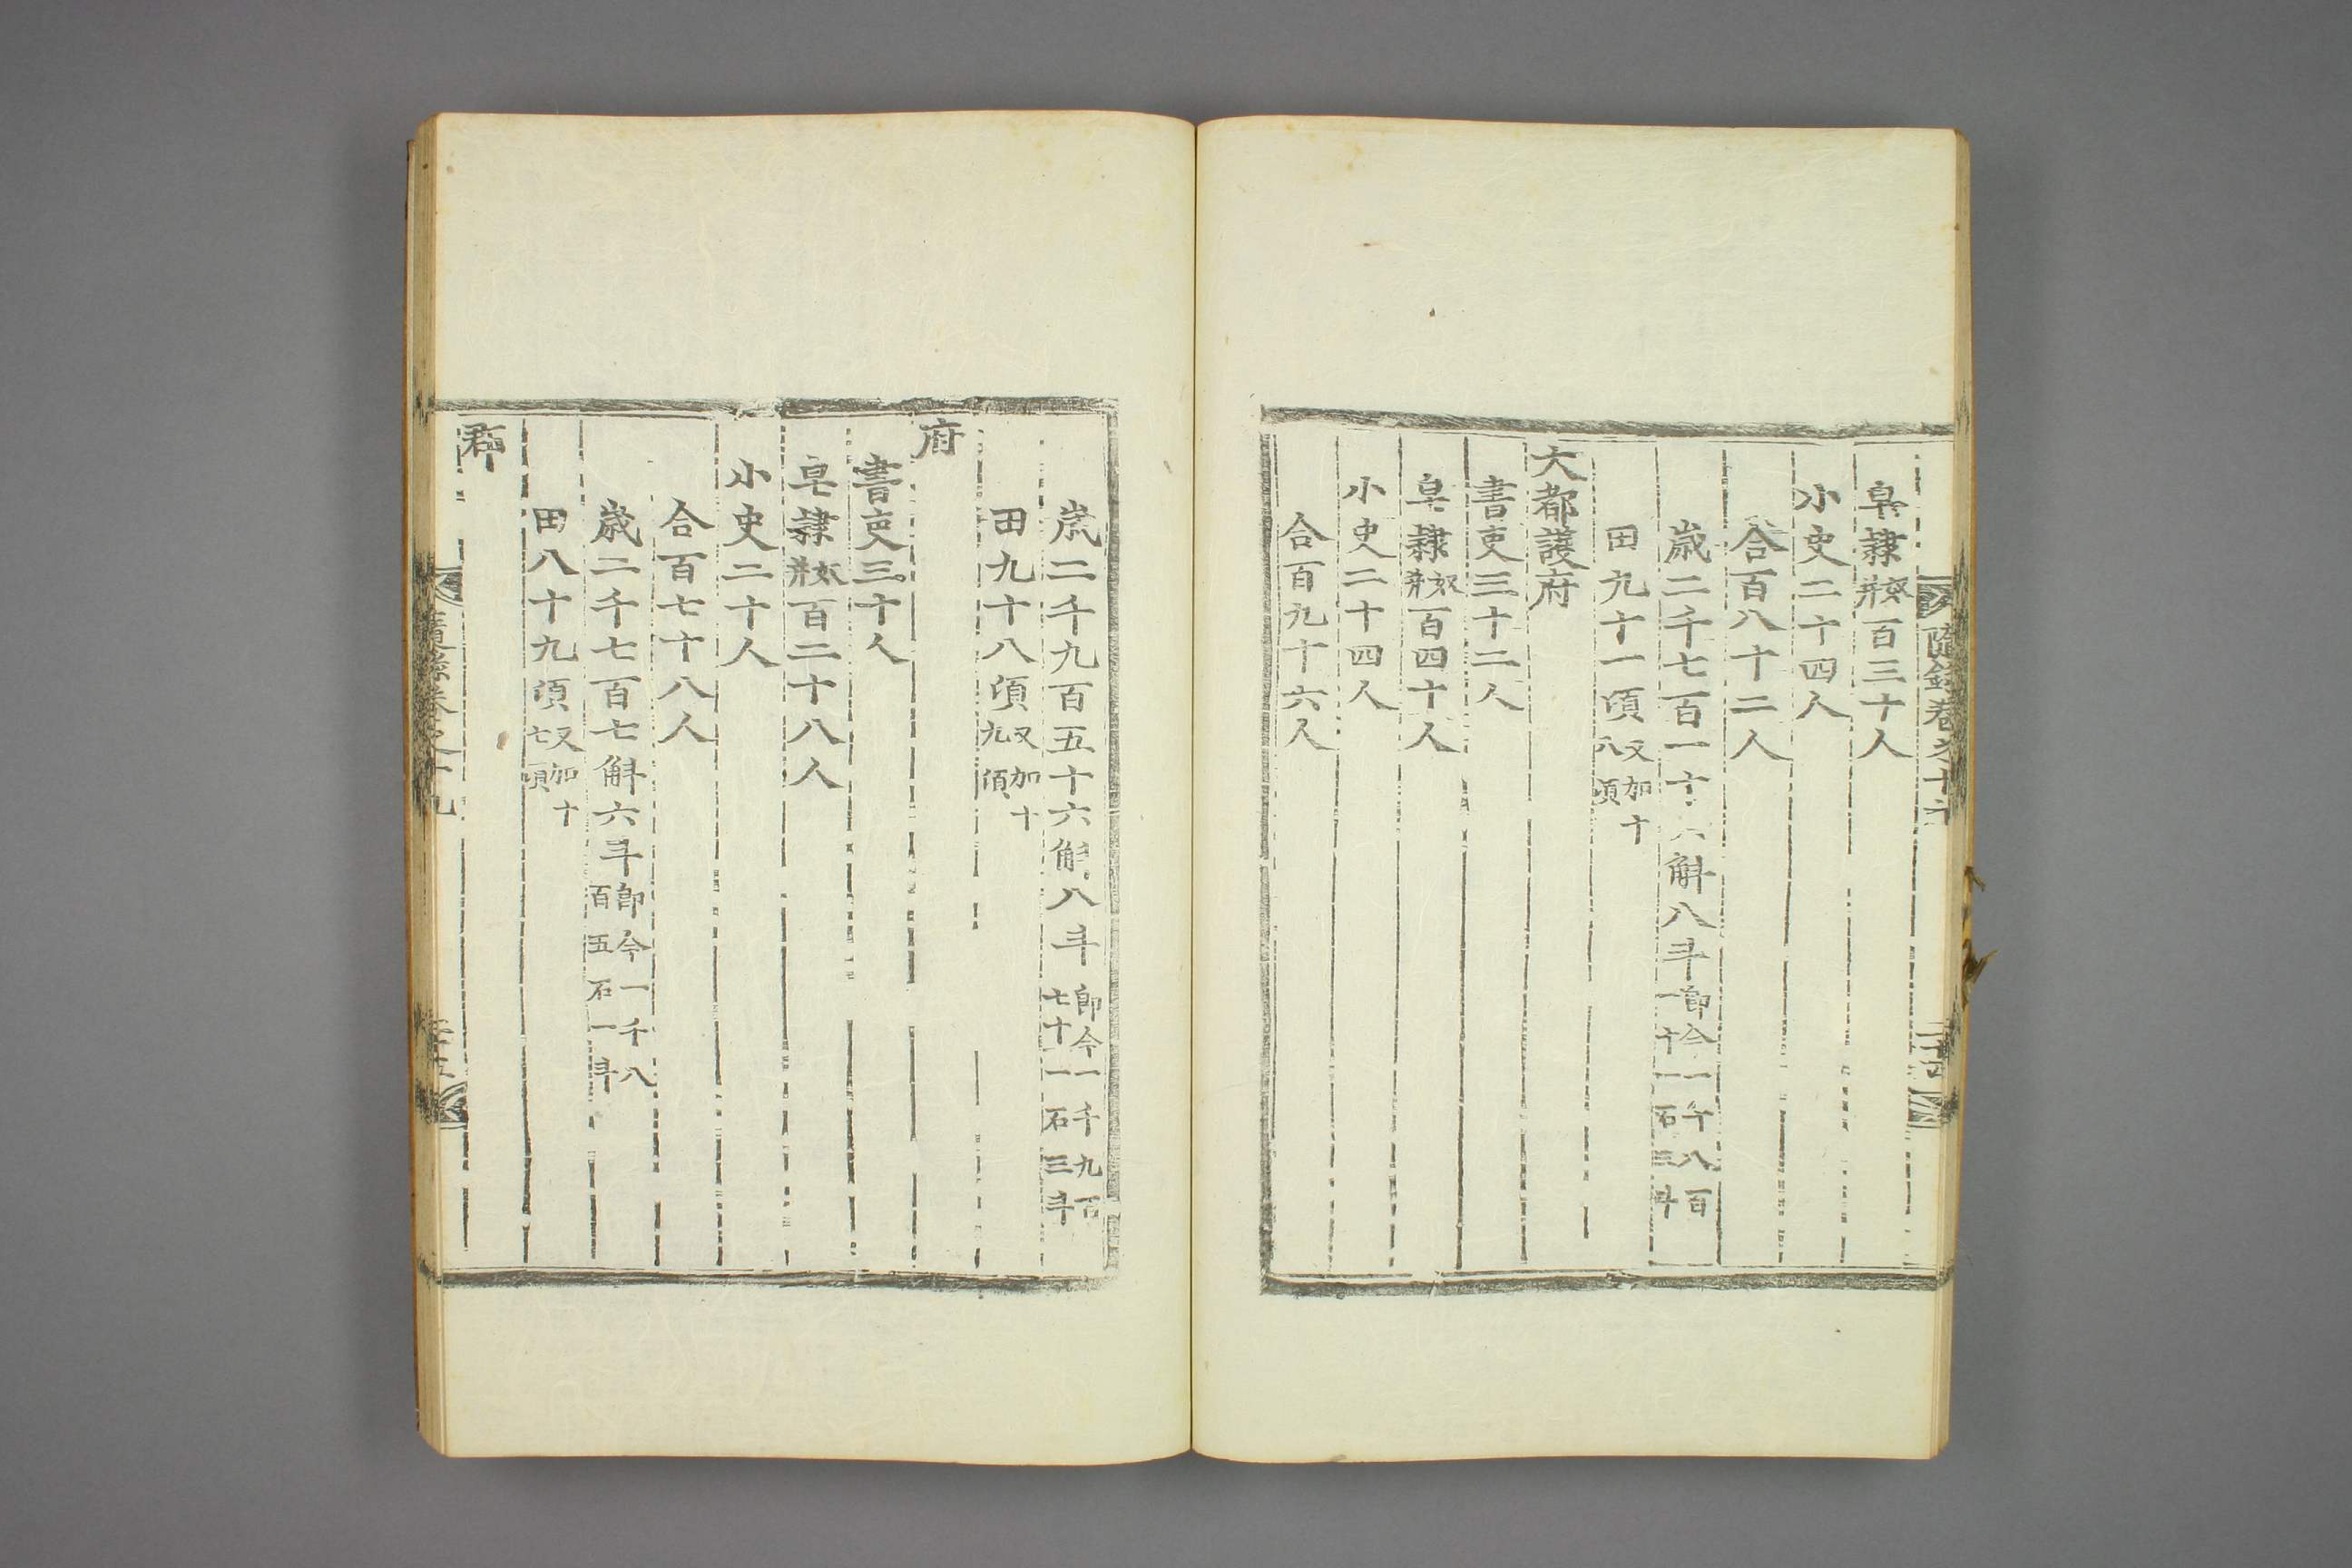 隨錄卷之十九
皁隷奴婢並百三十人
小史二十四人
合百八十二人
歲二千七百一十六斛八斗即今一千八百一十一石三斗
田九十一頃又加十八頃
大都護府
書吏三十二人
皁隷奴婢並百四十人
小史二十四人
合百九十六人
歲二千九百五十六斛八斗即今一千九百七十一石三斗
田九十八頃又加十九頃
府
書吏三十人
皁隷奴婢並百二十八人
小史二十人
合百七十八人
歲二千七百七斛六斗即今一千八百五石一斗
田八十九頃又加十七頃
郡
隨錄卷之十九